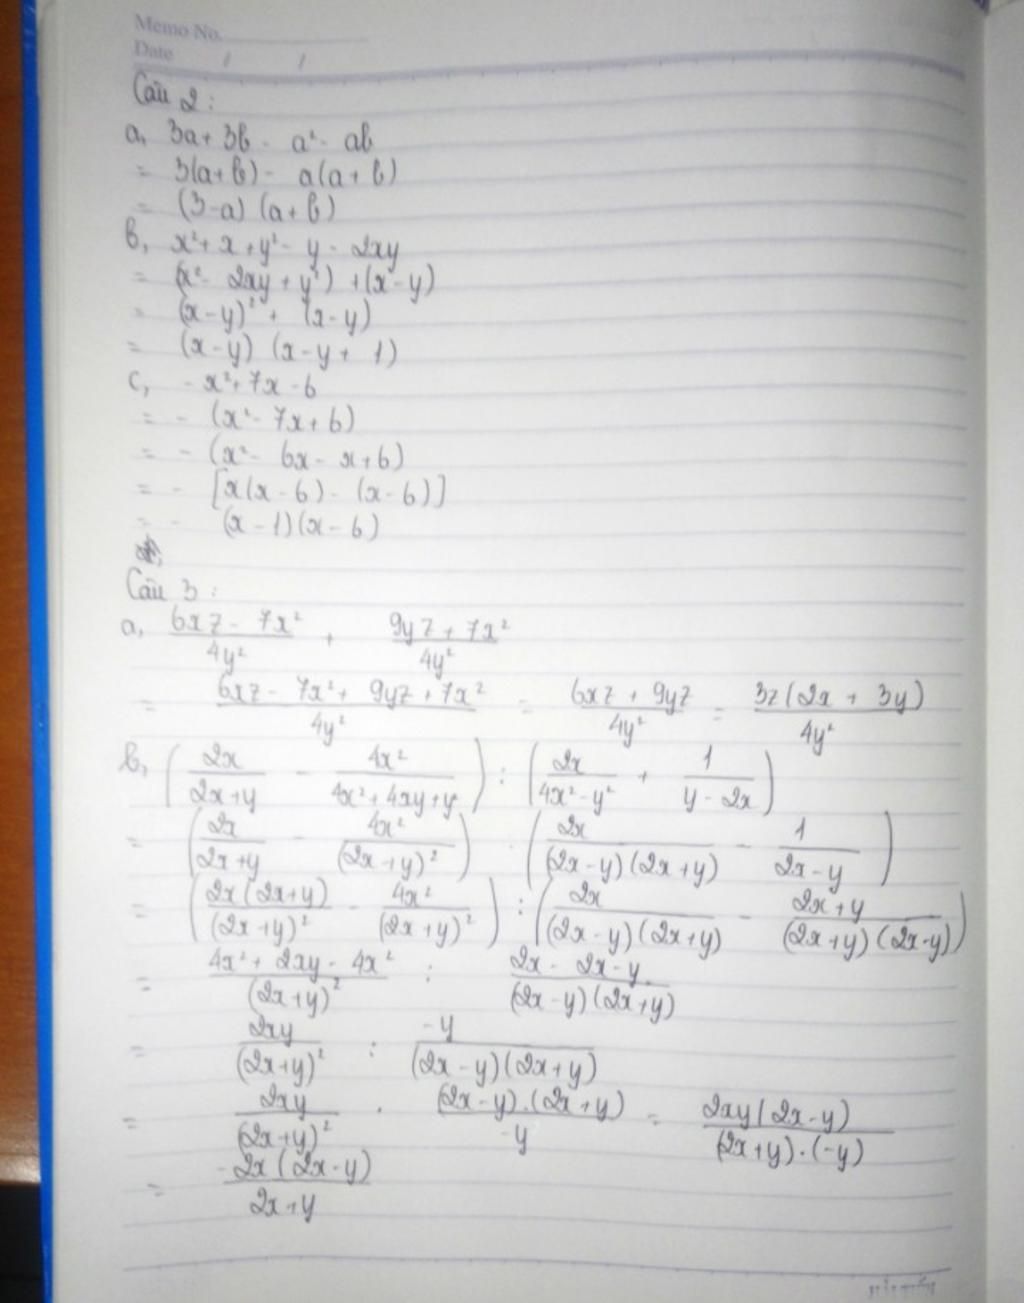 Memo No.
Date / /
Câu 2 :
a, 3a + 3b - a² - ab
= 3(a + b) - a(a + b)
= (3 - a) (a + b)
b, x² + x + y² - y - 2xy
= (x² - 2xy + y²) + (x - y)
= (x - y)² + (x - y)
= (x - y) (x - y + 1)
c, - x² + 7x - 6
= - (x² - 7x + 6)
= - (x² - 6x - x + 6)
= - [x(x - 6) - (x - 6)]
= - (x - 1)(x - 6)
Câu 3 :
a, (6xz - 7x²)/(4y²) + (9yz + 7x²)/(4y²)
= (6xz - 7x² + 9yz + 7x²)/(4y²) = (6xz + 9yz)/(4y²) = (3z(2x + 3y))/(4y²)
b, ( (2x)/(2x + y) - (4x²)/(4x² + 4xy + y²) ) : ( (2x)/(4x² - y²) + 1/(y - 2x) )
= ( (2x)/(2x + y) - (4x²)/((2x + y)²) ) : ( (2x)/((2x - y)(2x + y)) - 1/(2x - y) )
= ( (2x(2x + y))/((2x + y)²) - (4x²)/((2x + y)²) ) : ( (2x)/((2x - y)(2x + y)) - (2x + y)/((2x + y)(2x - y)) )
= (4x² + 2xy - 4x²)/((2x + y)²) : (2x - 2x - y)/((2x - y)(2x + y))
= (2xy)/((2x + y)²) : (-y)/((2x - y)(2x + y))
= (2xy)/((2x + y)²) . ((2x - y).(2x + y))/(-y) = (2xy(2x - y))/((2x + y).(-y))
= (-2x(2x - y))/(2x + y)